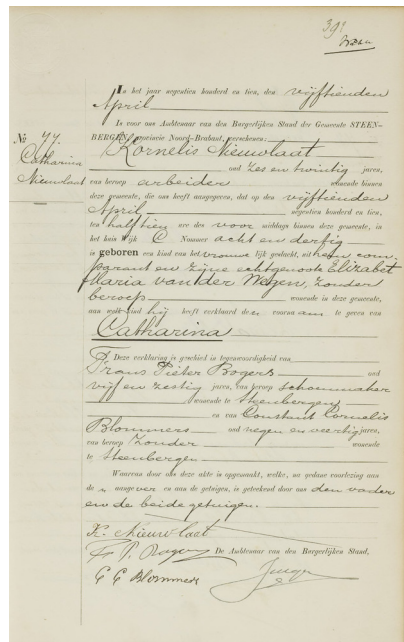 39
In het jaar negentien honderd en tien, den vijftienden
April
is voor ons Ambtenaar van den Burgerlijken Stand der Gemeente STEEN-
BERGEN, provincie Noord-Brabant, verschenen:
No 77
Catharina
Nieuwlaat
Kornelis Nieuwlaat
oud zes en twintig jaren,
van beroep arbeider wonende binnen
deze gemeente, die ons heeft aangegeven, dat op den vijftienden
April negentien honderd en tien,
ten half tien ure des voormiddags binnen deze gemeente, in
het huis Wijk C Nummer acht en dertig
is geboren een kind van het vrouwelijk geslacht, uit hem com-
parant en zijne echtgenoote Elizabet
Maria van der Wegen, zonder
beroep wonende in deze gemeente,
aan welk kind hij heeft verklaard den voornaam te geven van
Catharina
Deze verklaring is geschied in tegenwoordigheid van
Frans Pieter Bogers oud
vijf en zestig jaren, van beroep schoenmaker
wonende te Steenbergen
en van Constant Cornelis
Blommers oud negen en veertig jaren,
van beroep zonder wonende
te Steenbergen
Waarvan door ons deze akte is opgemaakt, welke, na gedane voorlezing aan
de n aangever en aan de getuigen, is geteekend door ons den vader
en de beide getuigen.
K. Nieuwlaat
F P. Bogers De Ambtenaar van den Burgerlijken Stand,
C C Blommers